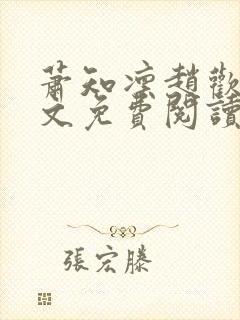 蕭知凛趙歡
文免費閱讀
張宏滕